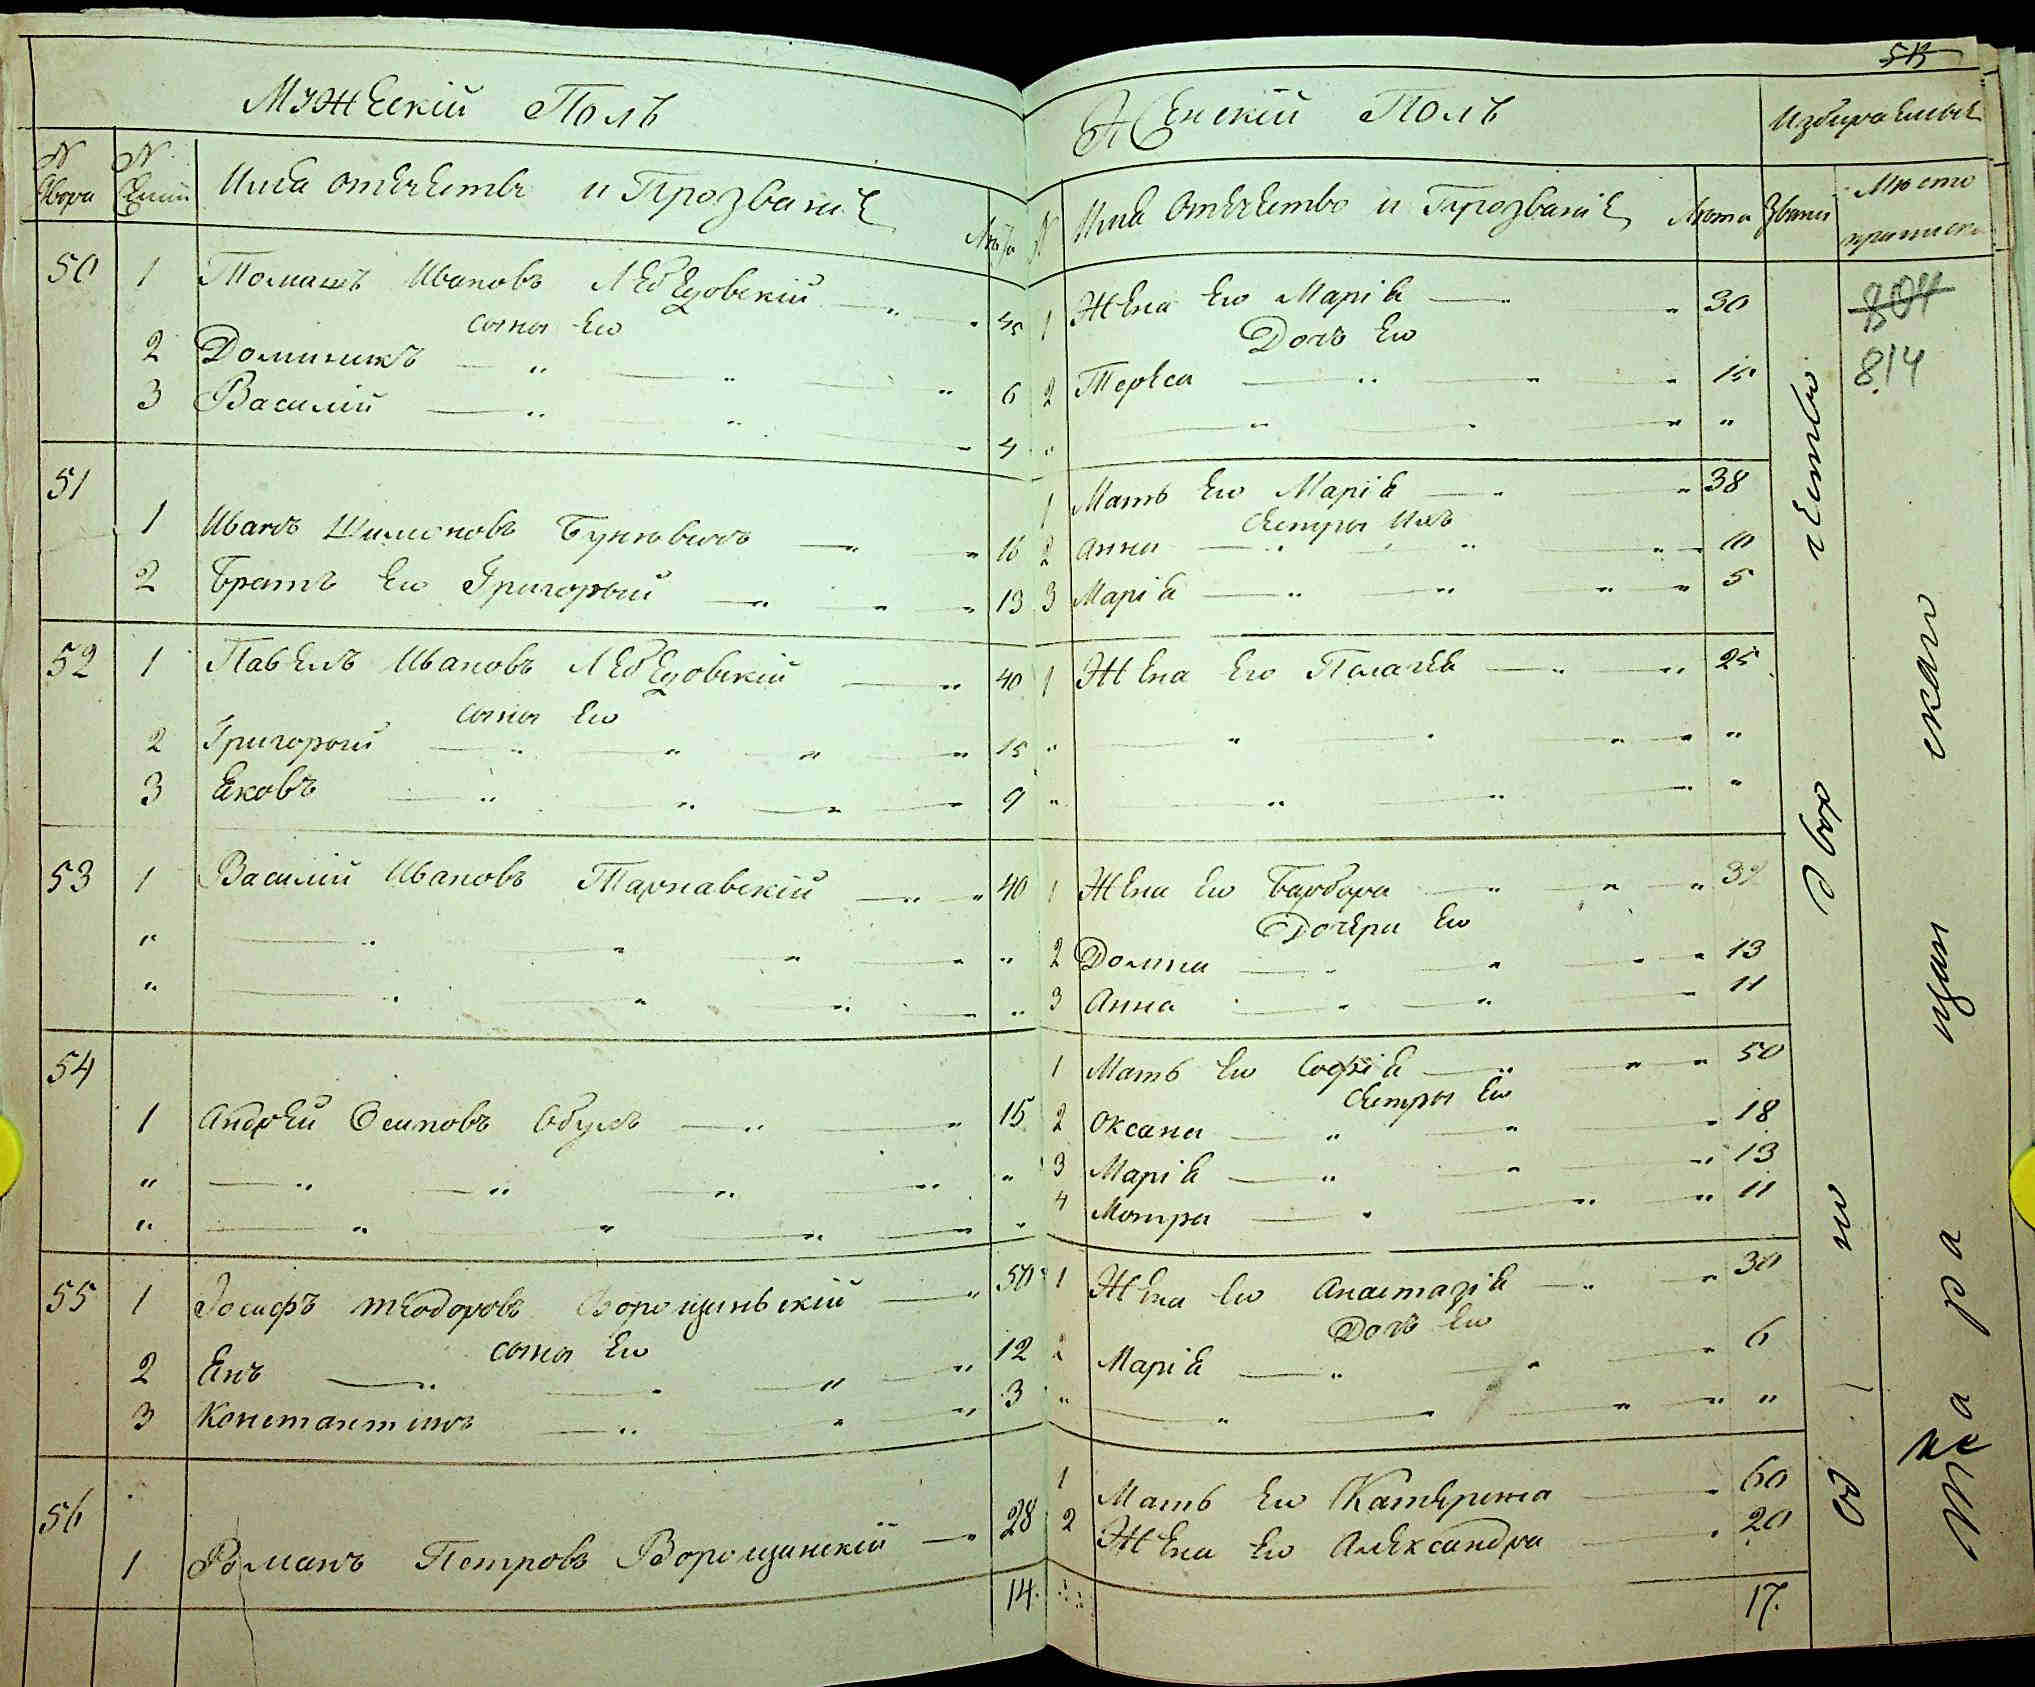 Мужескій Полъ
N Двора
N Семии
Имя отечетво и Прозваніе
Лѣта
50 1 Томашъ Ивановъ Лебедовскій 45
сыны Его
2 Доминикъ 6
3 Василій 4
51
1 Иванъ Шимоновъ 16
2 Братъ Его Григорый 13
52 1 Павелъ Ивановъ Лебедовскій 40
сыны Его
2 Григорый 15
3 Яковъ 9
53 1 Василій Ивановъ Тарнавскій 40
54
1 Андрей Осиповъ 15
55 1 Іосифъ Теодоровъ Ворощиньскій 50
сыны Его
2 Янъ 12
3 Константинъ 3
56
1 Романъ Петровъ Ворощинскій 28
14.
Женскій Полъ
Избираемые
N
Имя Отечетво и Прозваніе
Лѣта
Званіе
Мѣсто
приписки
1 Жена Его Марія 30
Дочь Его
2 Тереса 15
1 Мать Его Марія 38
Сестры Ихъ
2 Анна 10
3 Марія 5
1 Жена Его Палагея 25
1 Жена Его Барбара
Дочери Его
2 Домна 13
3 Анна 11
1 Мать Его Софія 50
Сестры Его
2 Оксана 18
3 Марія 13
4 Мотра 11
1 Жена Его Анастазія 30
Дочь Его
2 Марія 6
1 Мать Его Катерина 60
2 Жена Его Александра 20
17.
804
814